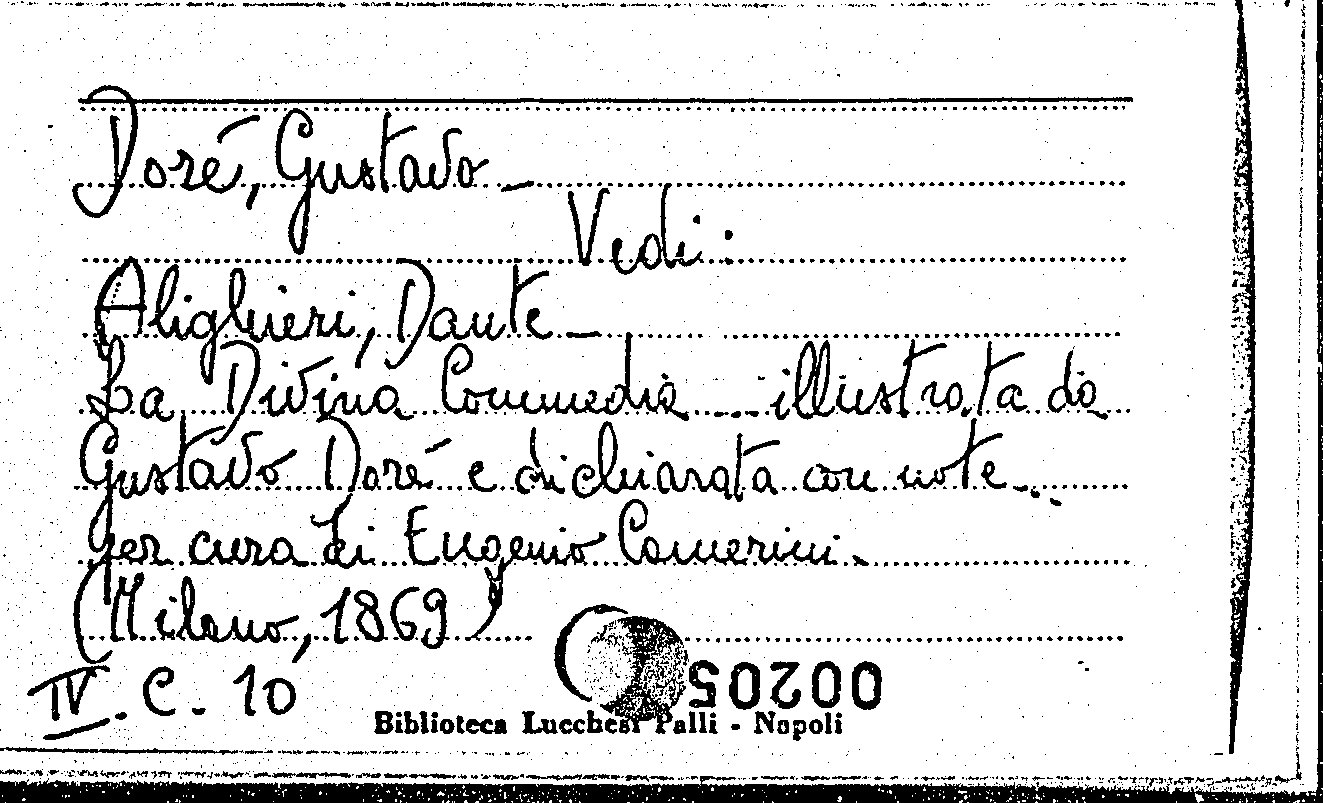 Doré, Gustavo –
Vedi:
Alighieri, Dante –
La Divina Commedia ... illustrata da
Gustavo Doré e dichiarata con note...
per cura di Eugenio Camerini.
(Milano, 1869)
IV. C. 10
00205
Biblioteca Lucchesi Palli - Napoli